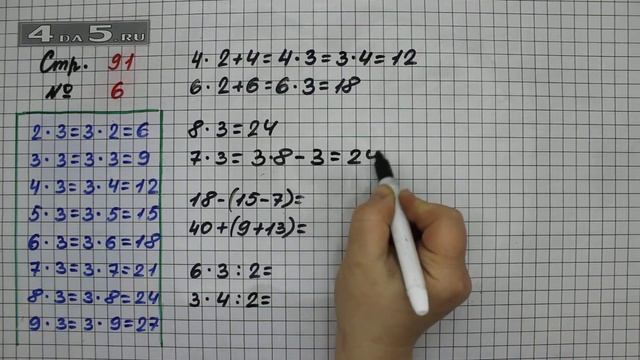 4da5.ru
Стр. 91
№ 6
2·3=3·2=6
3·3=3·3=9
4·3=3·4=12
5·3=3·5=15
6·3=3·6=18
7·3=3·7=21
8·3=3·8=24
9·3=3·9=27
4·2+4=4·3=3·4=12
6·2+6=6·3=18
8·3=24
7·3=3·8-3=24
18-(15-7)=
40+(9+13)=
6·3:2=
3·4:2=